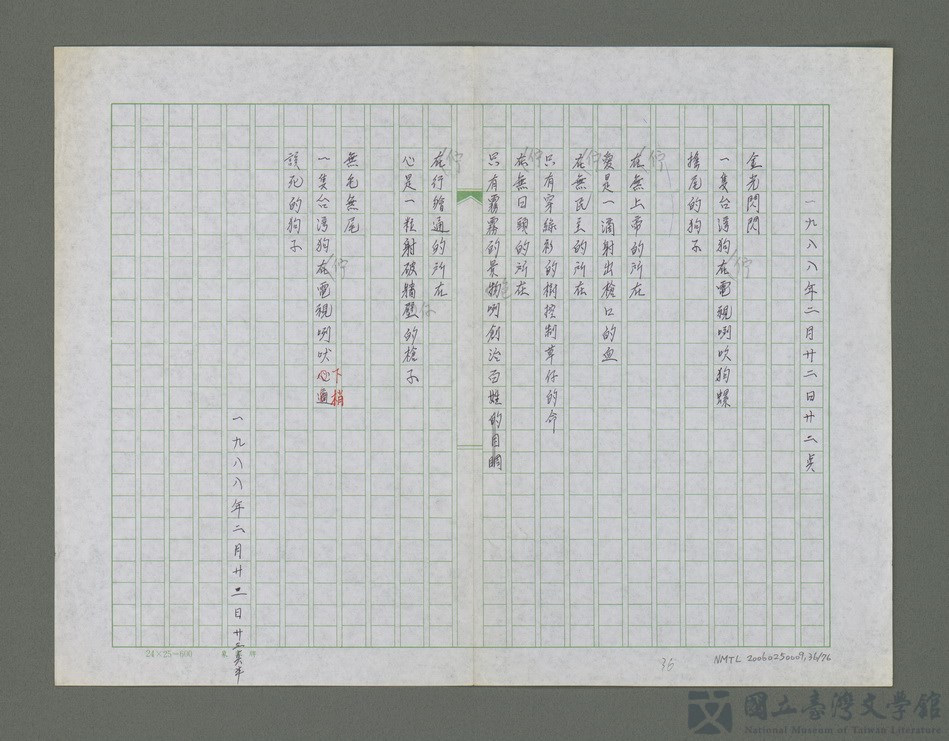 一九八八年二月廿二日廿二點
金光閃閃
一隻台灣狗在電視咧吹狗螺
搖尾的狗子
在無上帝的所在
愛是一滴射出槍口的血
在無民主的所在
只有穿綠衫的樹控制草仔的命
在無日頭的所在
只有霧霧的景物咧創治百姓的目睭
在行繪通的所在
心是一粒射破牆壁的槍子
無毛無尾
一隻台灣狗在電視咧吠
下梢
該死的狗子
一九八八年二月廿二日廿三點半
24×25=600
36
NMTL 20060250009, 36/76
國立臺灣文學館
National Museum of Taiwan Literature